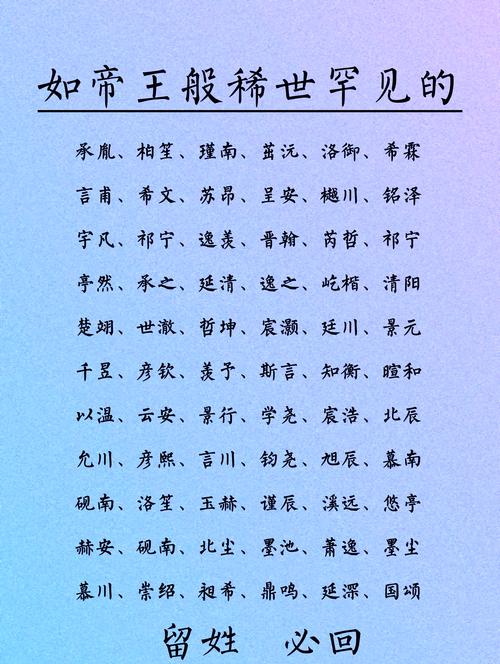 如帝王般稀世罕见的
承胤、柏笙、瑾南、茁沅、洛御、希霖
言甫、希文、苏昂、呈安、樾川、铭泽
宇凡、祁宁、逸羡、晋翰、芮哲、祁宁
亭然、承之、延清、逸之、屹楷、清阳
楚翊、世澈、哲坤、宸灏、廷川、景元
千昱、彦钦、羡予、斯言、知衡、暄和
以温、云安、景行、学尧、宸浩、北辰
允川、彦熙、言川、钧尧、旭辰、慕南
砚南、洛笙、玉赫、谨辰、溪远、悠亭
赫安、砚南、北尘、墨池、萧逸、墨尘
慕川、崇绍、昶希、鼎鸣、延深、国颂
留姓 必回